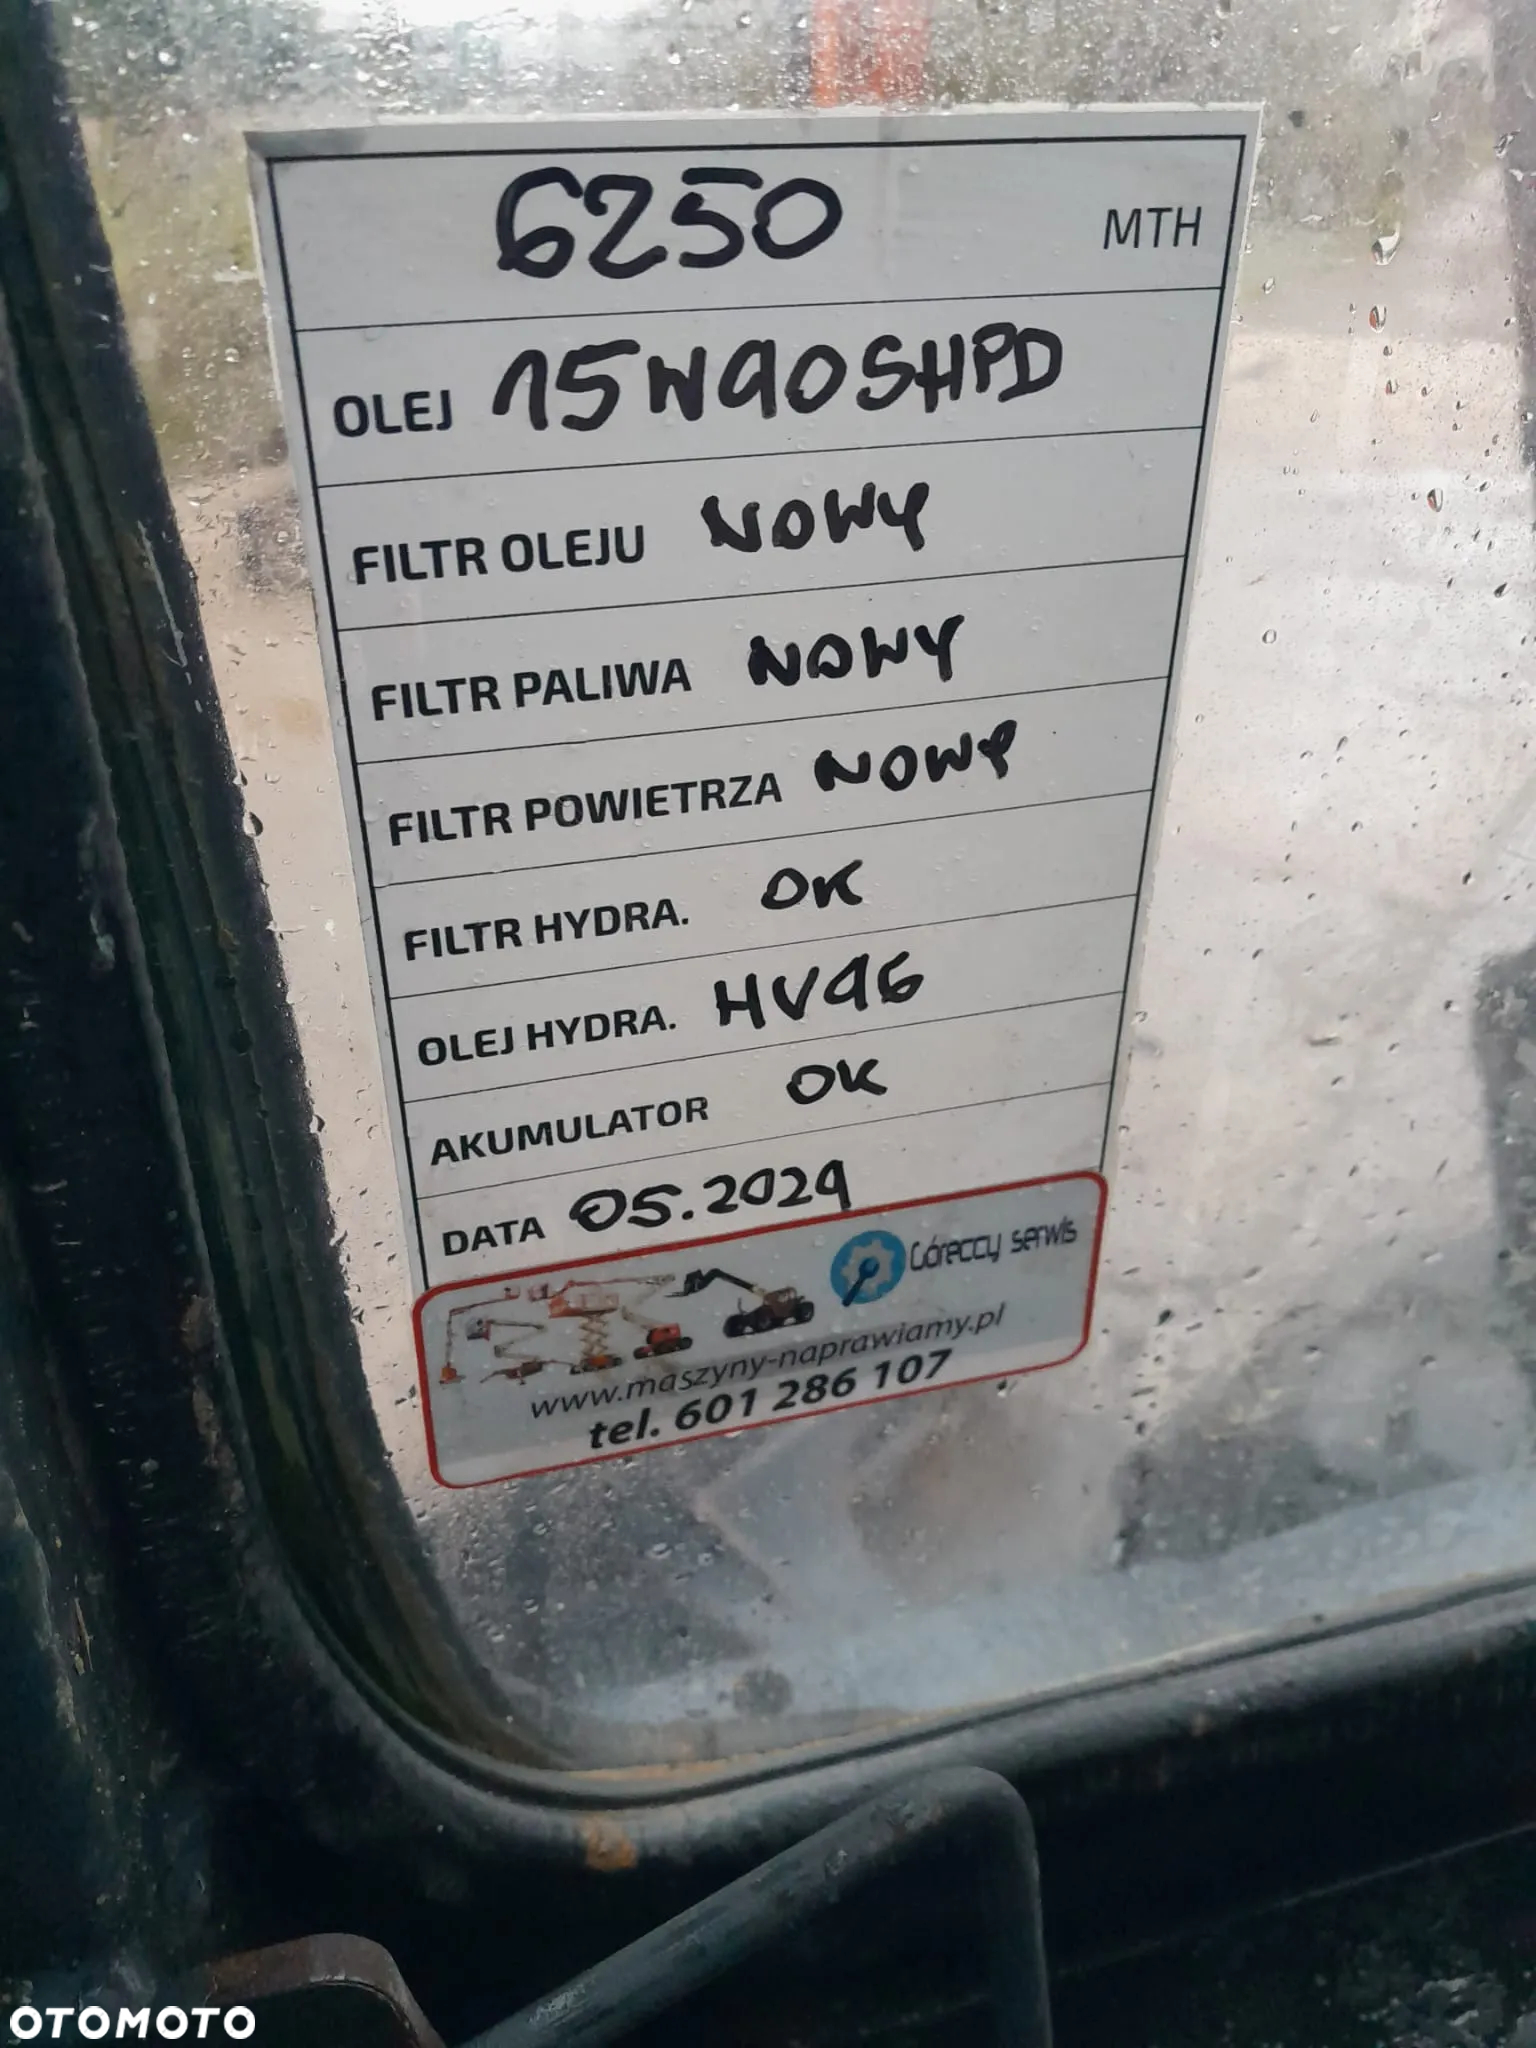 6250 MTH
OLEJ 15W40 SHPD
FILTR OLEJU NOWY
FILTR PALIWA NOWY
FILTR POWIETRZA NOWY
FILTR HYDRA. OK
OLEJ HYDRA. HV46
AKUMULATOR OK
DATA 05.2024
Góreccy serwis
www.maszyny-naprawiamy.pl
tel. 601 286 107
OTOMOTO